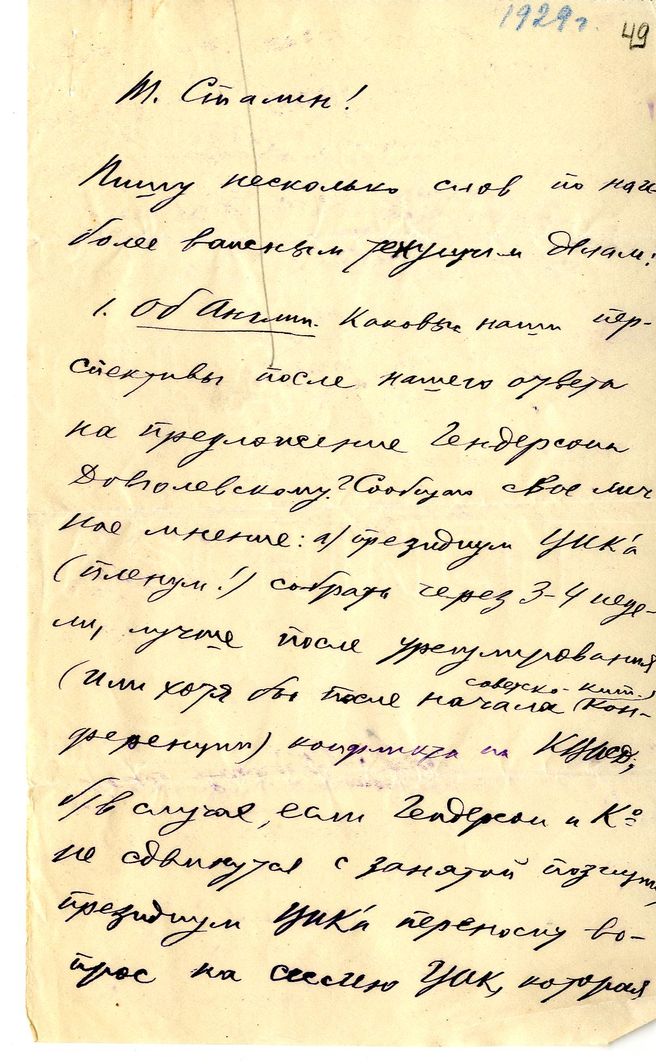 1929 г.
49
Т. Сталин!
Пишу несколько слов по наи-
более важным текущим делам:
1. Об Англии. Каковы наши пер-
спективы после нашего ответа
на предложение Гендерсона
Довгалевскому? Сообщаю свое лич
ное мнение: а) президиум ЦИК'а
(пленум!) собрать через 3-4 неде-
ли, лучше после урегулирования
(или хотя бы после начала советско-кит. кон-
ференции) конфликта на КВжд;
б) в случае, если Гендерсон и Кº
не сдвинутся с занятой позиции,
президиум ЦИК'а переносит во-
прос на сессию ЦИК, которая